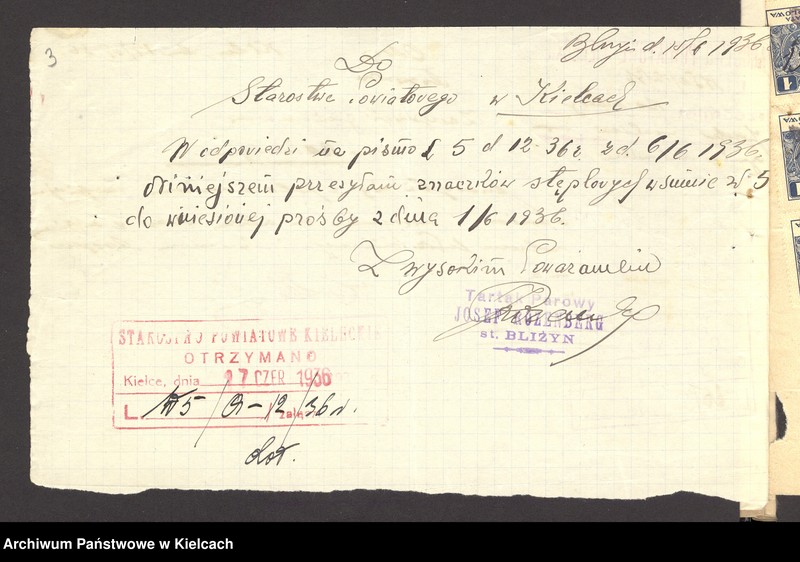 3
Bliżyn d. 15/6 1936
Do
Starostwa Powiatowego w Kielcach
W odpowiedzi na pismo L 5 d 12-36r. z d. 6/6 1936.
Niniejszem przesyłam znaczków stęplowych w sumie zł. 5
do wniesionej prośby z dnia 1/6 1936.
Z wysokim Poważaniem
Tartak Parowy
JOSEF ROZENBERG
st. BLIŻYN
STAROSTWO POWIATOWE KIELECKIE
OTRZYMANO
Kielce, dnia 17 CZER 1936
L. W5/ /36 r. zał.
dot.
Archiwum Państwowe w Kielcach